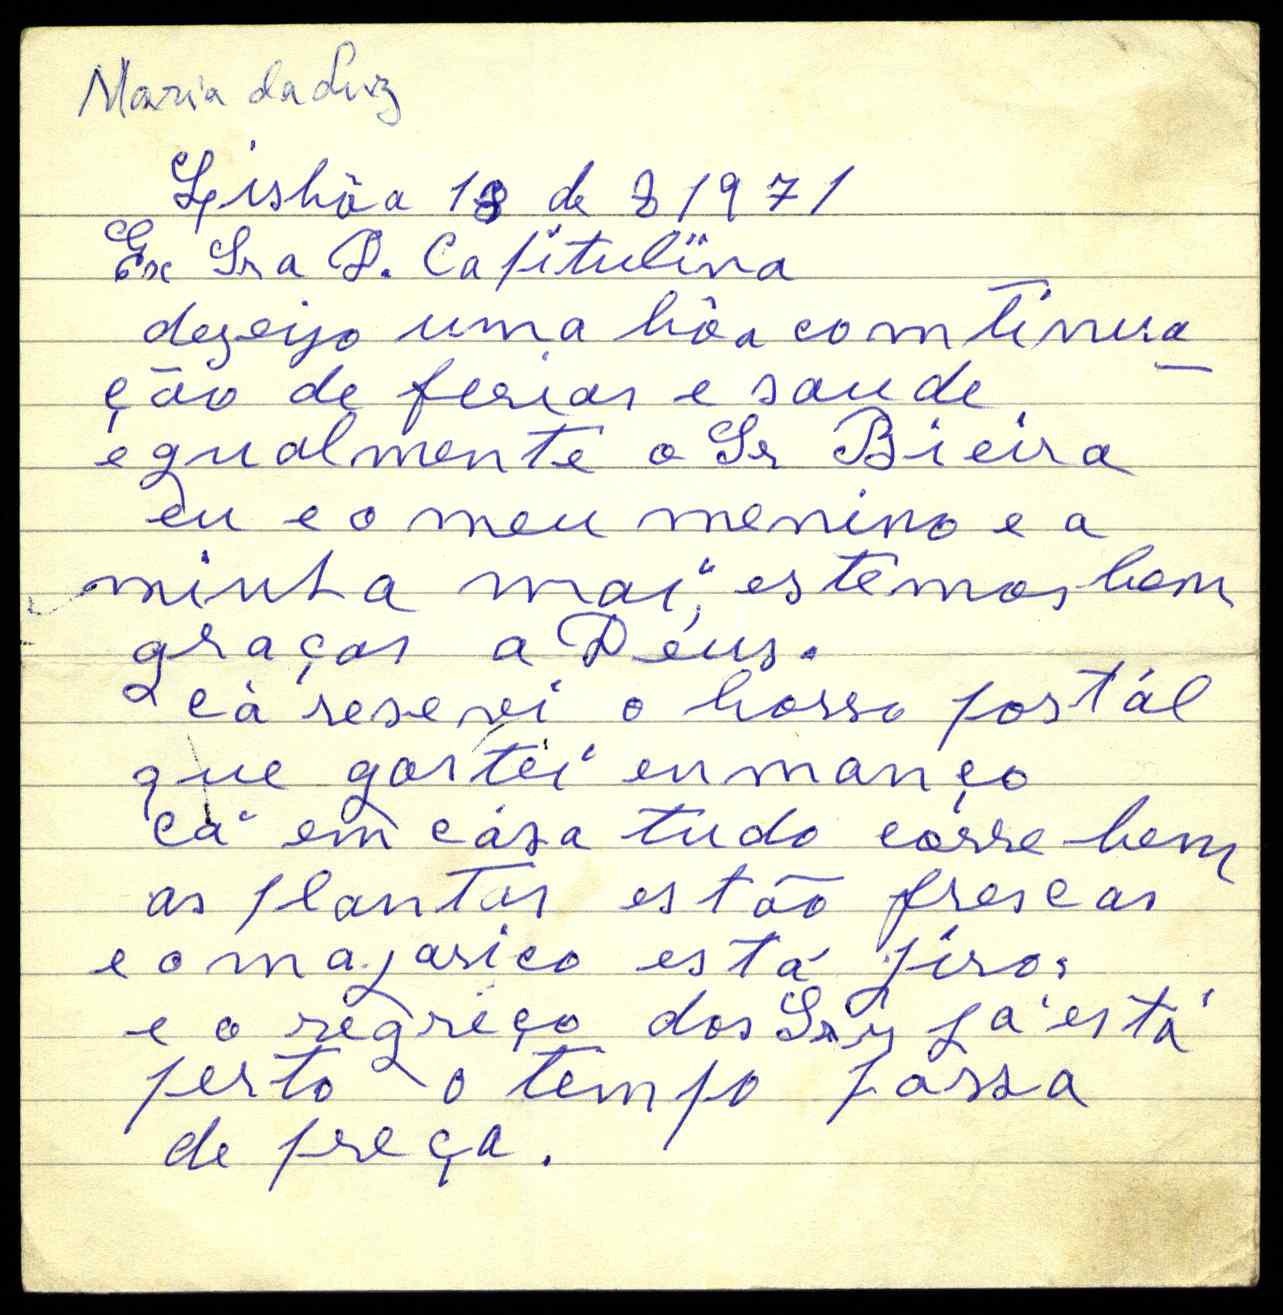 Maria da Luz
Lisbôa 18 de 8 1971
Ex Sra D. Capitulina
dezeijo uma bôa comtinua
ção de ferias e saude
egualmente o Sr Bieira
eu e o meu menino e a
minha mai, estemos bem
graças a Déus.
cá resevi o bosso postál
que gostéi enmanço
cá em cása tudo córre bem
as plantas estão frescas
e o majarico está jiro,
e o régriço dos Srs já está
perto o tempo passa
de preça.